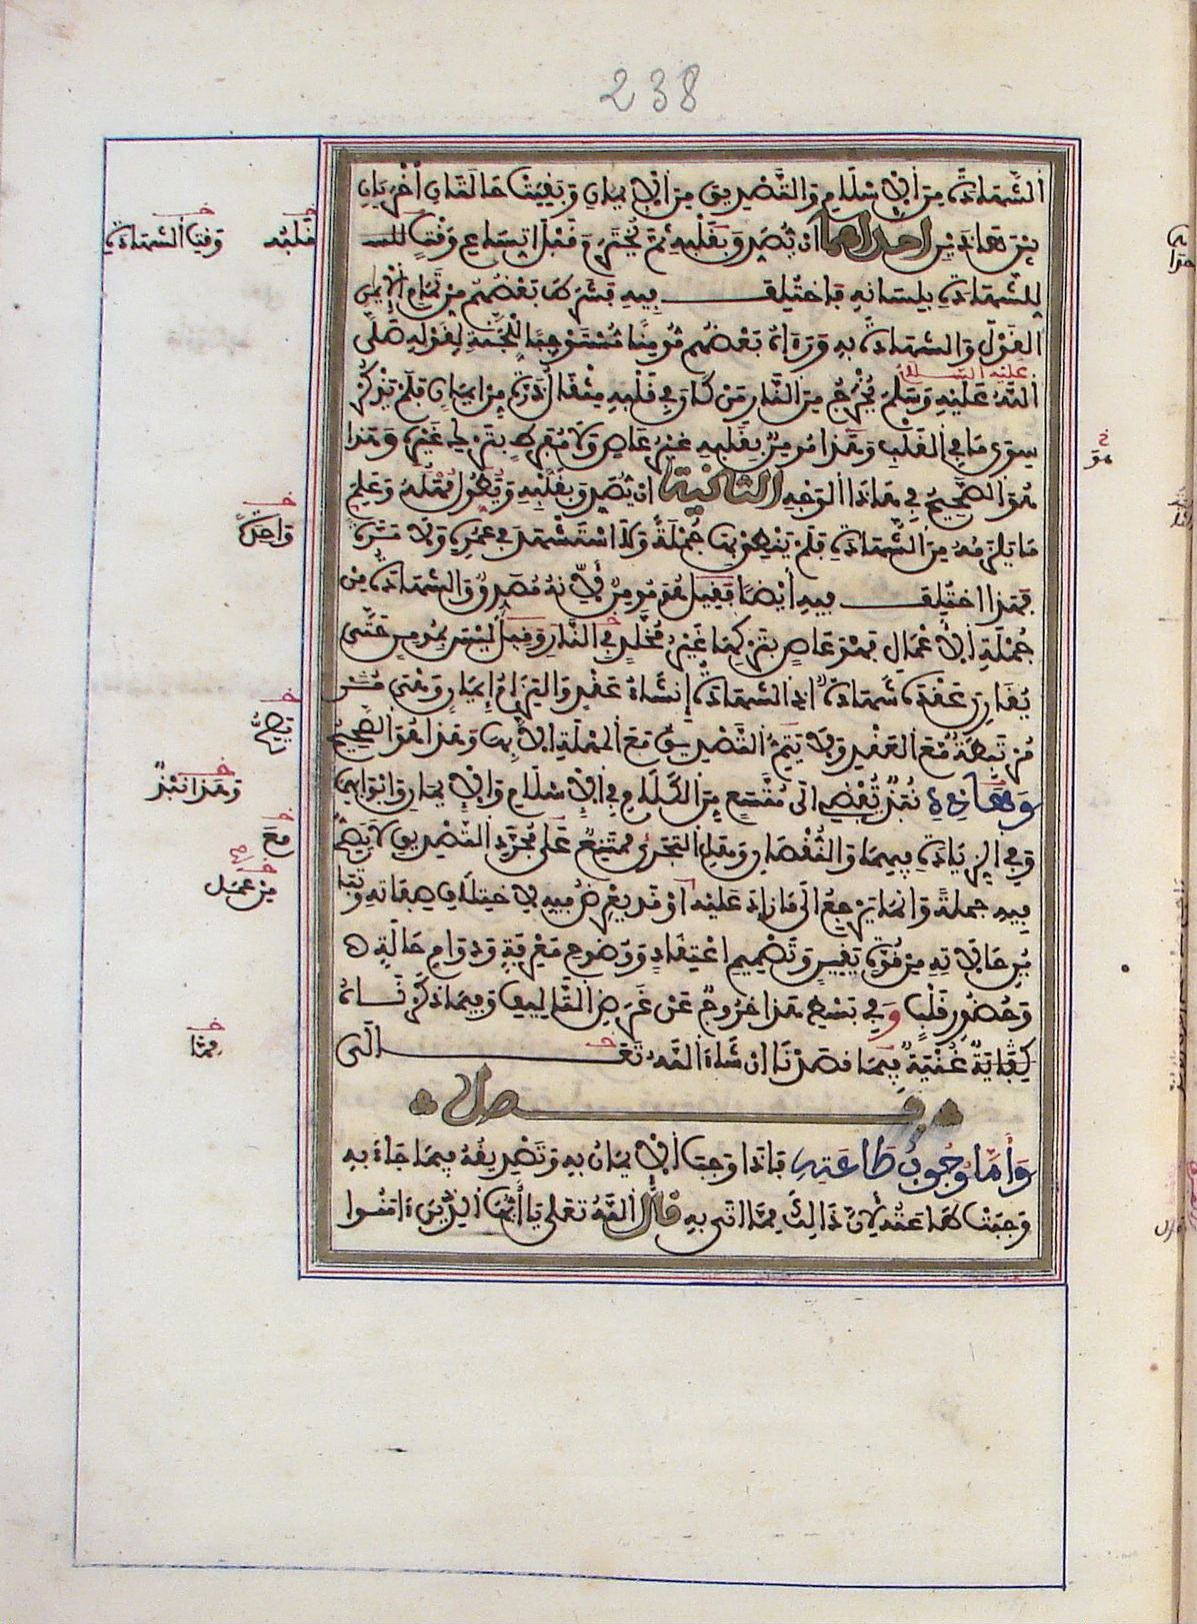 238
الشَّهَادَةَ مِنَ الْإِسْلَامِ وَالتَّصْدِيقَ مِنَ الْإِيمَانِ وَبَقِيَتْ حَالَتَانِ أُخْرَيَانِ
بَيْنَ هَاذَيْنِ احداهما أنْ يُصَدِّقَ بِقَلْبِهِ ثُمَّ يُخْتَرَمَ قَبْلَ اتِّسَاعِ وَقْتٍ
لِلشَّهَادَةِ بِلِسَانِهِ فَاخْتُلِفَ فِيهِ فَشَرَطَ بَعْضُهُمْ مِنْ تَمَامِ الْإِيمَانِ
الْقَوْلَ وَالشَّهَادَةَ بِهِ وَرَءَاهُ بَعْضُهُمْ مُومِنًا مُسْتَوْجِبًا لِلْجَنَّةِ لِقَوْلِهِ صَلَّى
عَلَيْهِ السَّلَامُ
اللَّهُ عَلَيْهِ وَسَلَّمَ يُخْرَجُ مِنَ النَّارِ مَنْ كَانَ فِي قَلْبِهِ مِثْقَالُ ذَرَّةٍ مِنْ إِيمَانٍ فَلَمْ يَذْكُرْ
سِوَى مَا فِي الْقَلْبِ وَهَذَا مُومِنٌ بِقَلْبِهِ غَيْرُ عَاصٍ وَلَا مُفَرِّطٍ بِتَرْكِ غَيْرِهِ وَهَذَا
هُوَ الصَّحِيحُ فِي هَاذَا الْوَجْهِ الثانية أنْ يُصَدِّقَ بِقَلْبِهِ وَيُطَوِّلَ مُهَلَهُ وَعَلِمَ
مَا يَلْزَمُهُ مِنَ الشَّهَادَةِ فَلَمْ يَنْطِقْ بِهَا جُمْلَةً وَلَا اسْتَشْهَدَ فِي عُمُرِهِ وَلَا مَرَّةً
فَهَذَا اخْتُلِفَ فِيهِ أَيْضًا فَقِيلَ هُوَ مُومِنٌ لِأَنَّهُ مُصَدِّقٌ وَالشَّهَادَةُ مِنْ
جُمْلَةِ الْأَعْمَالِ فَهُوَ عَاصٍ بِتَرْكِهَا غَيْرُ مُخَلَّدٍ فِي النَّارِ وَقِيلَ لَيْسَ بِمُومِنٍ حَتَّى
يُقَارِنَ عَقْدَهُ شَهَادَةُ إِذِ الشَّهَادَةُ إِنْشَاءُ عَقْدٍ وَالْتِزَامُ إِيمَانٍ وَهْيَ
مُرْتَبِطَةٌ مَعَ الْعَقْدِ وَلَا يَتِمُّ التَّصْدِيقُ مَعَ الْمُهْلَةِ إِلَّا بِهَا وَهَذَا هُوَ الصَّحِيحُ
وَهَاذِهِ نُبَذٌ تُفْضِي إِلَى مُتَّسَعٍ مِنَ الْكَلَامِ فِي الْإِسْلَامِ وَالْإِيمَانِ وَأَبْوَابِهِمَا
وَفِي الزِّيَادَةِ فِيهِمَا وَالنُّقْصَانِ وَهَلِ التَّجَزِّي مُمْتَنِعٌ عَلَى مُجَرَّدِ التَّصْدِيقِ لَا يَصِحُّ
فِيهِ جملةً وَانَّمَا يَرْجِعُ إِلَى مَا زَادَ عَلَيْهِ اوْ قَدْ يَعْرِضُ فِيهِ لِاخْتِلَافِ صِفَاتِهِ وَتَبَا
يُنِ حَالَاتِهِ مِنْ قُوَّةِ يَقِينٍ وَتَصْمِيمِ اعْتِقَادٍ وَوُضُوحِ مَعْرِفَةٍ وَدَوَامِ حَالَةٍ
وَحُضُورِ قَلْبٍ وَفِي بَسْطِ هَذَا خُرُوجٌ عَنْ غَرَضِ التَّالِيفِ وَفِيمَا ذَكَرْنَاهُ
كِفَايَةٌ غُنْيَةٌ فِيمَا قَصَدْنَا إِنْ شَاءَ اللَّهُ تَعَالَى
فصل
وَأَمَّا وُجُوبُ طَاعَتِهِ فَإِذَا وَجَبَ الْإِيمَانُ بِهِ وَتَصْدِيقُهُ فِيمَا جَاءَ بِهِ
وَجَبَتْ طَاعَتُهُ لِأَنَّ ذَالِكَ مِمَّا اتَى بِهِ قَالَ اللَّهُ تَعَلَى يَا أَيُّهَا الَّذِينَ ءَامَنُوا
قَلْبُهُ
وَقْتِ الشَّهَادَةِ
وَاحِدَةً
يَصِحُّ
وَهَذَا نَبْذٌ
مَعَ
مِنْ عَمَل
مِمَّا
هُوَ